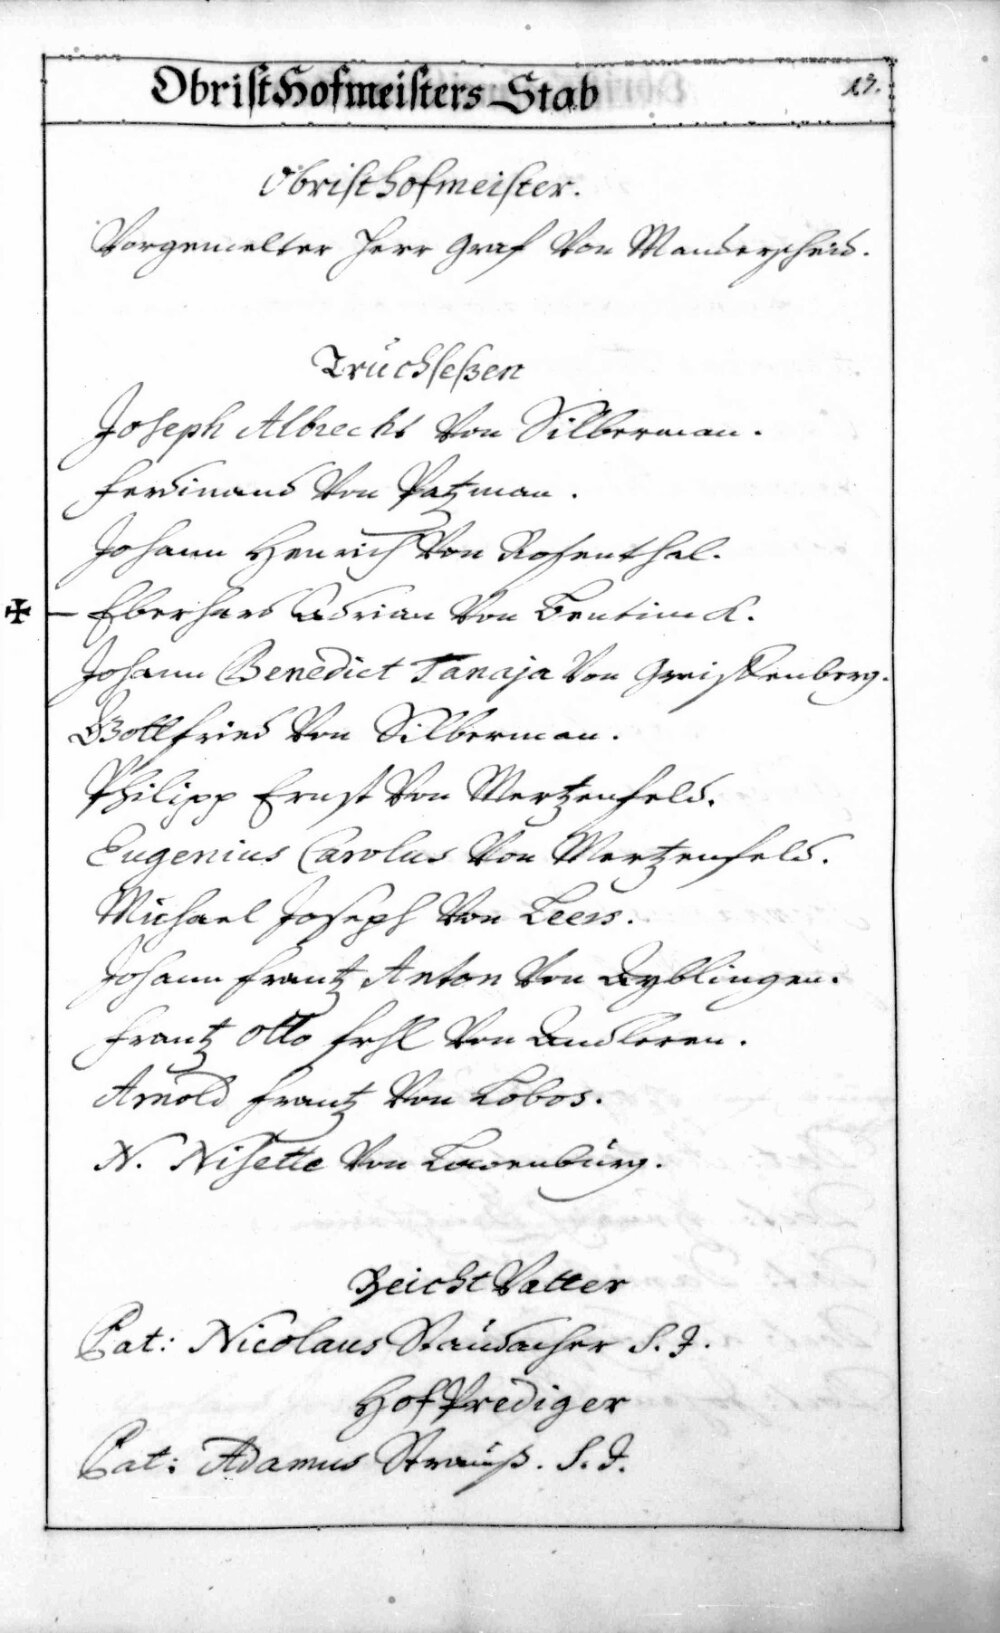 ObristHofmeisters Stab
19.
Obristhofmeister.
Vorgemelter Herr Graf Von Manderscheid.
Truchseßen
Joseph Albrecht Von Silberman.
Ferdinand Von Patzman.
Johann Henrich Von Rosenthal.
✠ – Eberhard Adrian Von Bentinck.
Johann Benedict Tanaja Von Greiffenberg.
Gottfried Von Silberman.
Philipp Ernst Von Mertzenfeld.
Eugenius Carolus Von Mertzenfeld.
Michael Joseph Von Leers.
Johann Frantz Anton Von Ayblingen.
Frantz Otto Frhl Von
Arnold Frantz Von Lobos.
N. Nisette Von Lowenburg.
Beicht Vatter
Pat: Nicolaus Staudacher S. J.
Hof Prediger
Pat: Adamus Strauß. S. J.